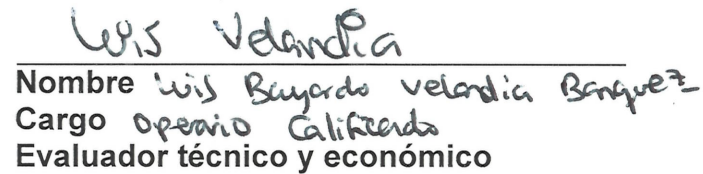 Luis Velandia
Nombre Luis Bayardo Velandia Banquez
Cargo Operario Calificado
Evaluador técnico y económico